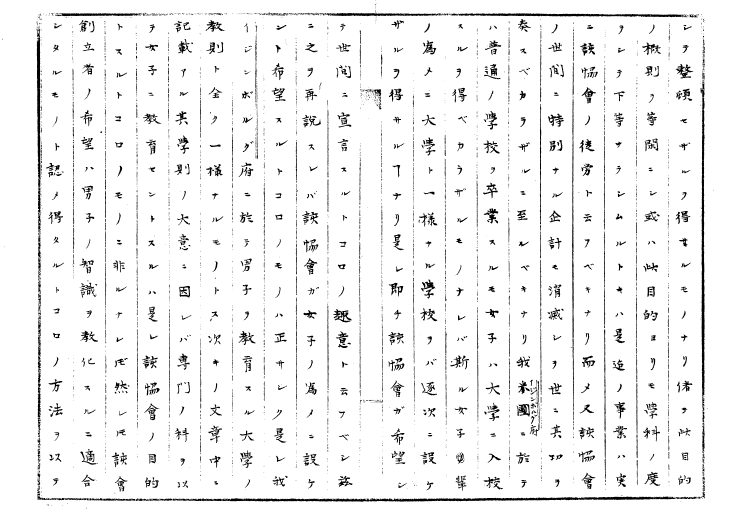 シテ整頓セザルヲ得ザルモノナリ偖テ此目的
ノ概則ヲ等閑ニシ或ハ此目的ヨリモ学科ノ度
ヲシテ下等ナラシムルトキハ是迄ノ事業ハ実
ニ該協會ノ徒労ト云フベキナリ而メ又該協會
ノ世間ニ特別ナル企計モ消滅シヲ世ニ其功ヲ
奏スベカラザルニ至ルベキナリ我米國ニ於テ
ハ普通ノ學校ヲ卒業スルモ女子ハ大學ニ入校
スルヲ得ベカラザルモノナレバ斯ル女子ノ輩
ノ為メニ大学ト一様ナル學校ヲバ逐次ニ設ケ
ザルヲ得サルヿナリ是レ即チ該協會ガ希望シ
テ世間ニ宣言スルトコロノ趣意ト云フベシ茲
ニ之ヲ再説スレバ該協會ガ女子ノ為メニ設ケ
ント希望スルトコロノモノハ正サシク是レ我
イジンボルグ府ニ於テ男子ヲ教育スル大學ノ
教則ト全ク一様ナルモノトス次キノ文章中ニ
記載アル其学則ノ大意ニ因レバ専門ノ科ヲ以
テ女子ニ教育セントスルハ是レ該協會ノ目的
トスルトコロノモノニ非ルナレ𪜈然レ𪜈該會
創立者ノ希望ハ男子ノ智識ヲ教化スルニ適合
シタルモノト認メ得タルトコロノ方法ヲ以テ